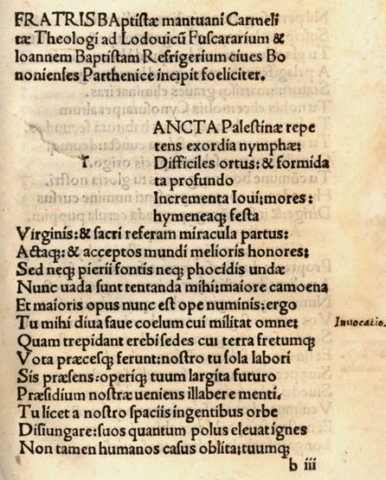 FRATRIS BAptistæ mantuani Carmeli
tæ Theologi ad Lodouicū Fuscararium &
Ioannem Baptistam Refrigerium ciues Bo
nonienses Parthenice incipit foeliciter.
ANCTA Palestinæ repe
tens exordia nymphæ:
r. Difficiles ortus: & formida
ta profundo
Incrementa Ioui: mores:
hymeneaq; festa
Virginis: & sacri referam miracula partus:
Actaq: & acceptos mundi melioris honores:
Sed neq; pierii fontis neq; phocidis undæ
Nunc uada sunt tentanda mihi: maiore camoena
Et maioris opus nunc est ope numinis: ergo
Tu mihi diua faue coelum cui militat omne:
Invocatio.
Quam trepidant erebi sedes cui terra fretumq;
Vota præcesq; ferunt: nostro tu sola labori
Sis præsens: operiq; tuum largita futuro
Præsidium nostræ ueniens illabere menti.
Tu licet a nostro spaciis ingentibus orbe
Disiungare: suos quantum polus eleuat ignes
Non tamen humanos casus oblita: tuumq;
b iii